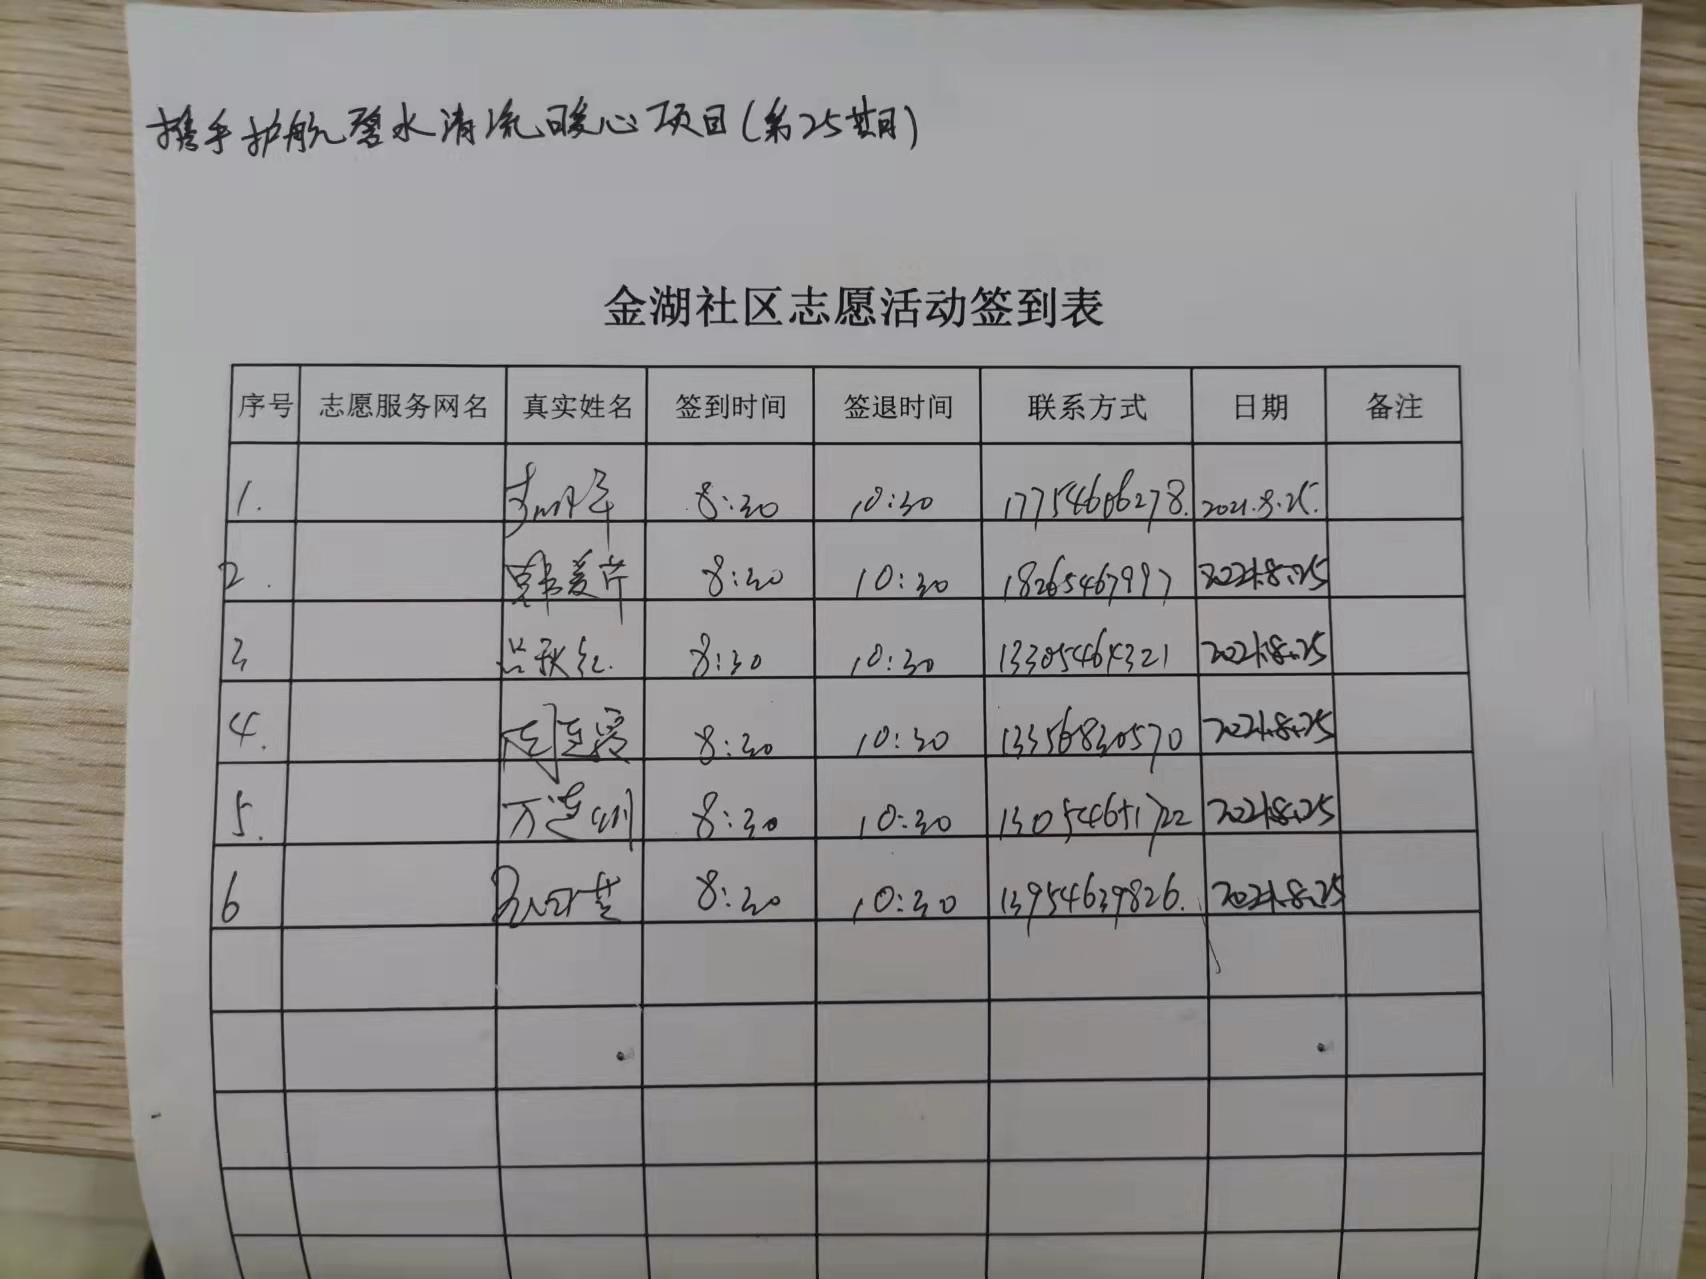 携手护航碧水清流暖心项目(第25期)
金湖社区志愿活动签到表
序号 志愿服务网名 真实姓名 签到时间 签退时间 联系方式 日期 备注
1. 8:30 10:30 17754606278. 2021.8.25.
2. 韩爱芹 8:30 10:30 18265467997 2021.8.25
3 吕秋红. 8:30 10:30 13305464321 2021.8.25
4. 8:30 10:30 13356830570 2021.8.25
5. 万连训 8:30 10:30 13054651722 2021.8.25
6 8:30 10:30 13954639826. 2021.8.25